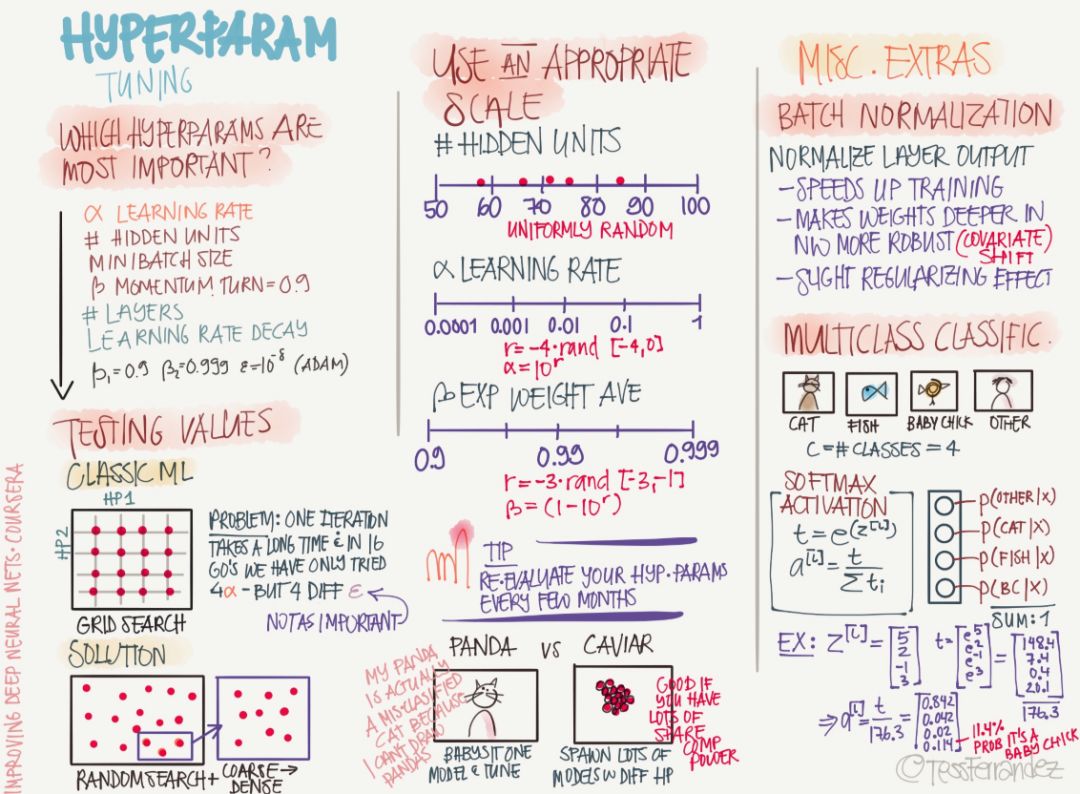 HYPERPARAM
TUNING
WHICH HYPERPARAMS ARE
MOST IMPORTANT?
α LEARNING RATE
# HIDDEN UNITS
MINIBATCH SIZE
β MOMENTUM TURN = 0.9
# LAYERS
LEARNING RATE DECAY
β₁=0.9 β₂=0.999 ε=10⁻⁸ (ADAM)
TESTING VALUES
CLASSIC ML
HP1
HP2
PROBLEM: ONE ITERATION
TAKES A LONG TIME & IN 16
GO'S WE HAVE ONLY TRIED
4α - BUT 4 DIFF ε
NOT AS IMPORTANT
GRID SEARCH
SOLUTION
RANDOM SEARCH +
COARSE→
DENSE
IMPROVING DEEP NEURAL NETS · COURSERA
USE AN APPROPRIATE
SCALE
# HIDDEN UNITS
50 60 70 80 90 100
UNIFORMLY RANDOM
α LEARNING RATE
0.0001 0.001 0.01 0.1 1
r=-4·rand [-4,0]
α=10ʳ
β EXP WEIGHT AVE
0.9 0.99 0.999
r=-3·rand [-3,-1]
β=(1-10ʳ)
TIP
RE-EVALUATE YOUR HYP.PARAMS
EVERY FEW MONTHS
PANDA VS CAVIAR
MY PANDA
IS ACTUALLY
A MISCLASSIFIED
CAT BECAUSE
I CAN'T DRAW
PANDAS
BABYSIT ONE
MODEL & TUNE
GOOD IF
YOU HAVE
LOTS OF
SPARE
COMP
POWER
SPAWN LOTS OF
MODELS W DIFF HP
MISC. EXTRAS
BATCH NORMALIZATION
NORMALIZE LAYER OUTPUT
- SPEEDS UP TRAINING
- MAKES WEIGHTS DEEPER IN
NW MORE ROBUST (COVARIATE)
SHIFT
- SLIGHT REGULARIZING EFFECT
MULTICLASS CLASSIFIC.
CAT FISH BABY CHICK OTHER
C = # CLASSES = 4
SOFTMAX
ACTIVATION
t = e^(z^[L])
a^[L] = t / Σtᵢ
P(OTHER|X)
P(CAT|X)
P(FISH|X)
P(BC|X)
SUM: 1
EX: z^[L] = [5 2 -1 3] t = [e⁵ e² e⁻¹ e³] = [148.4 7.4 0.4 20.1]
176.3
⇒ a^[L] = t / 176.3 = [0.842 0.042 0.02 0.114]
11.4%
PROB IT'S A
BABY CHICK
©TessFerrandez